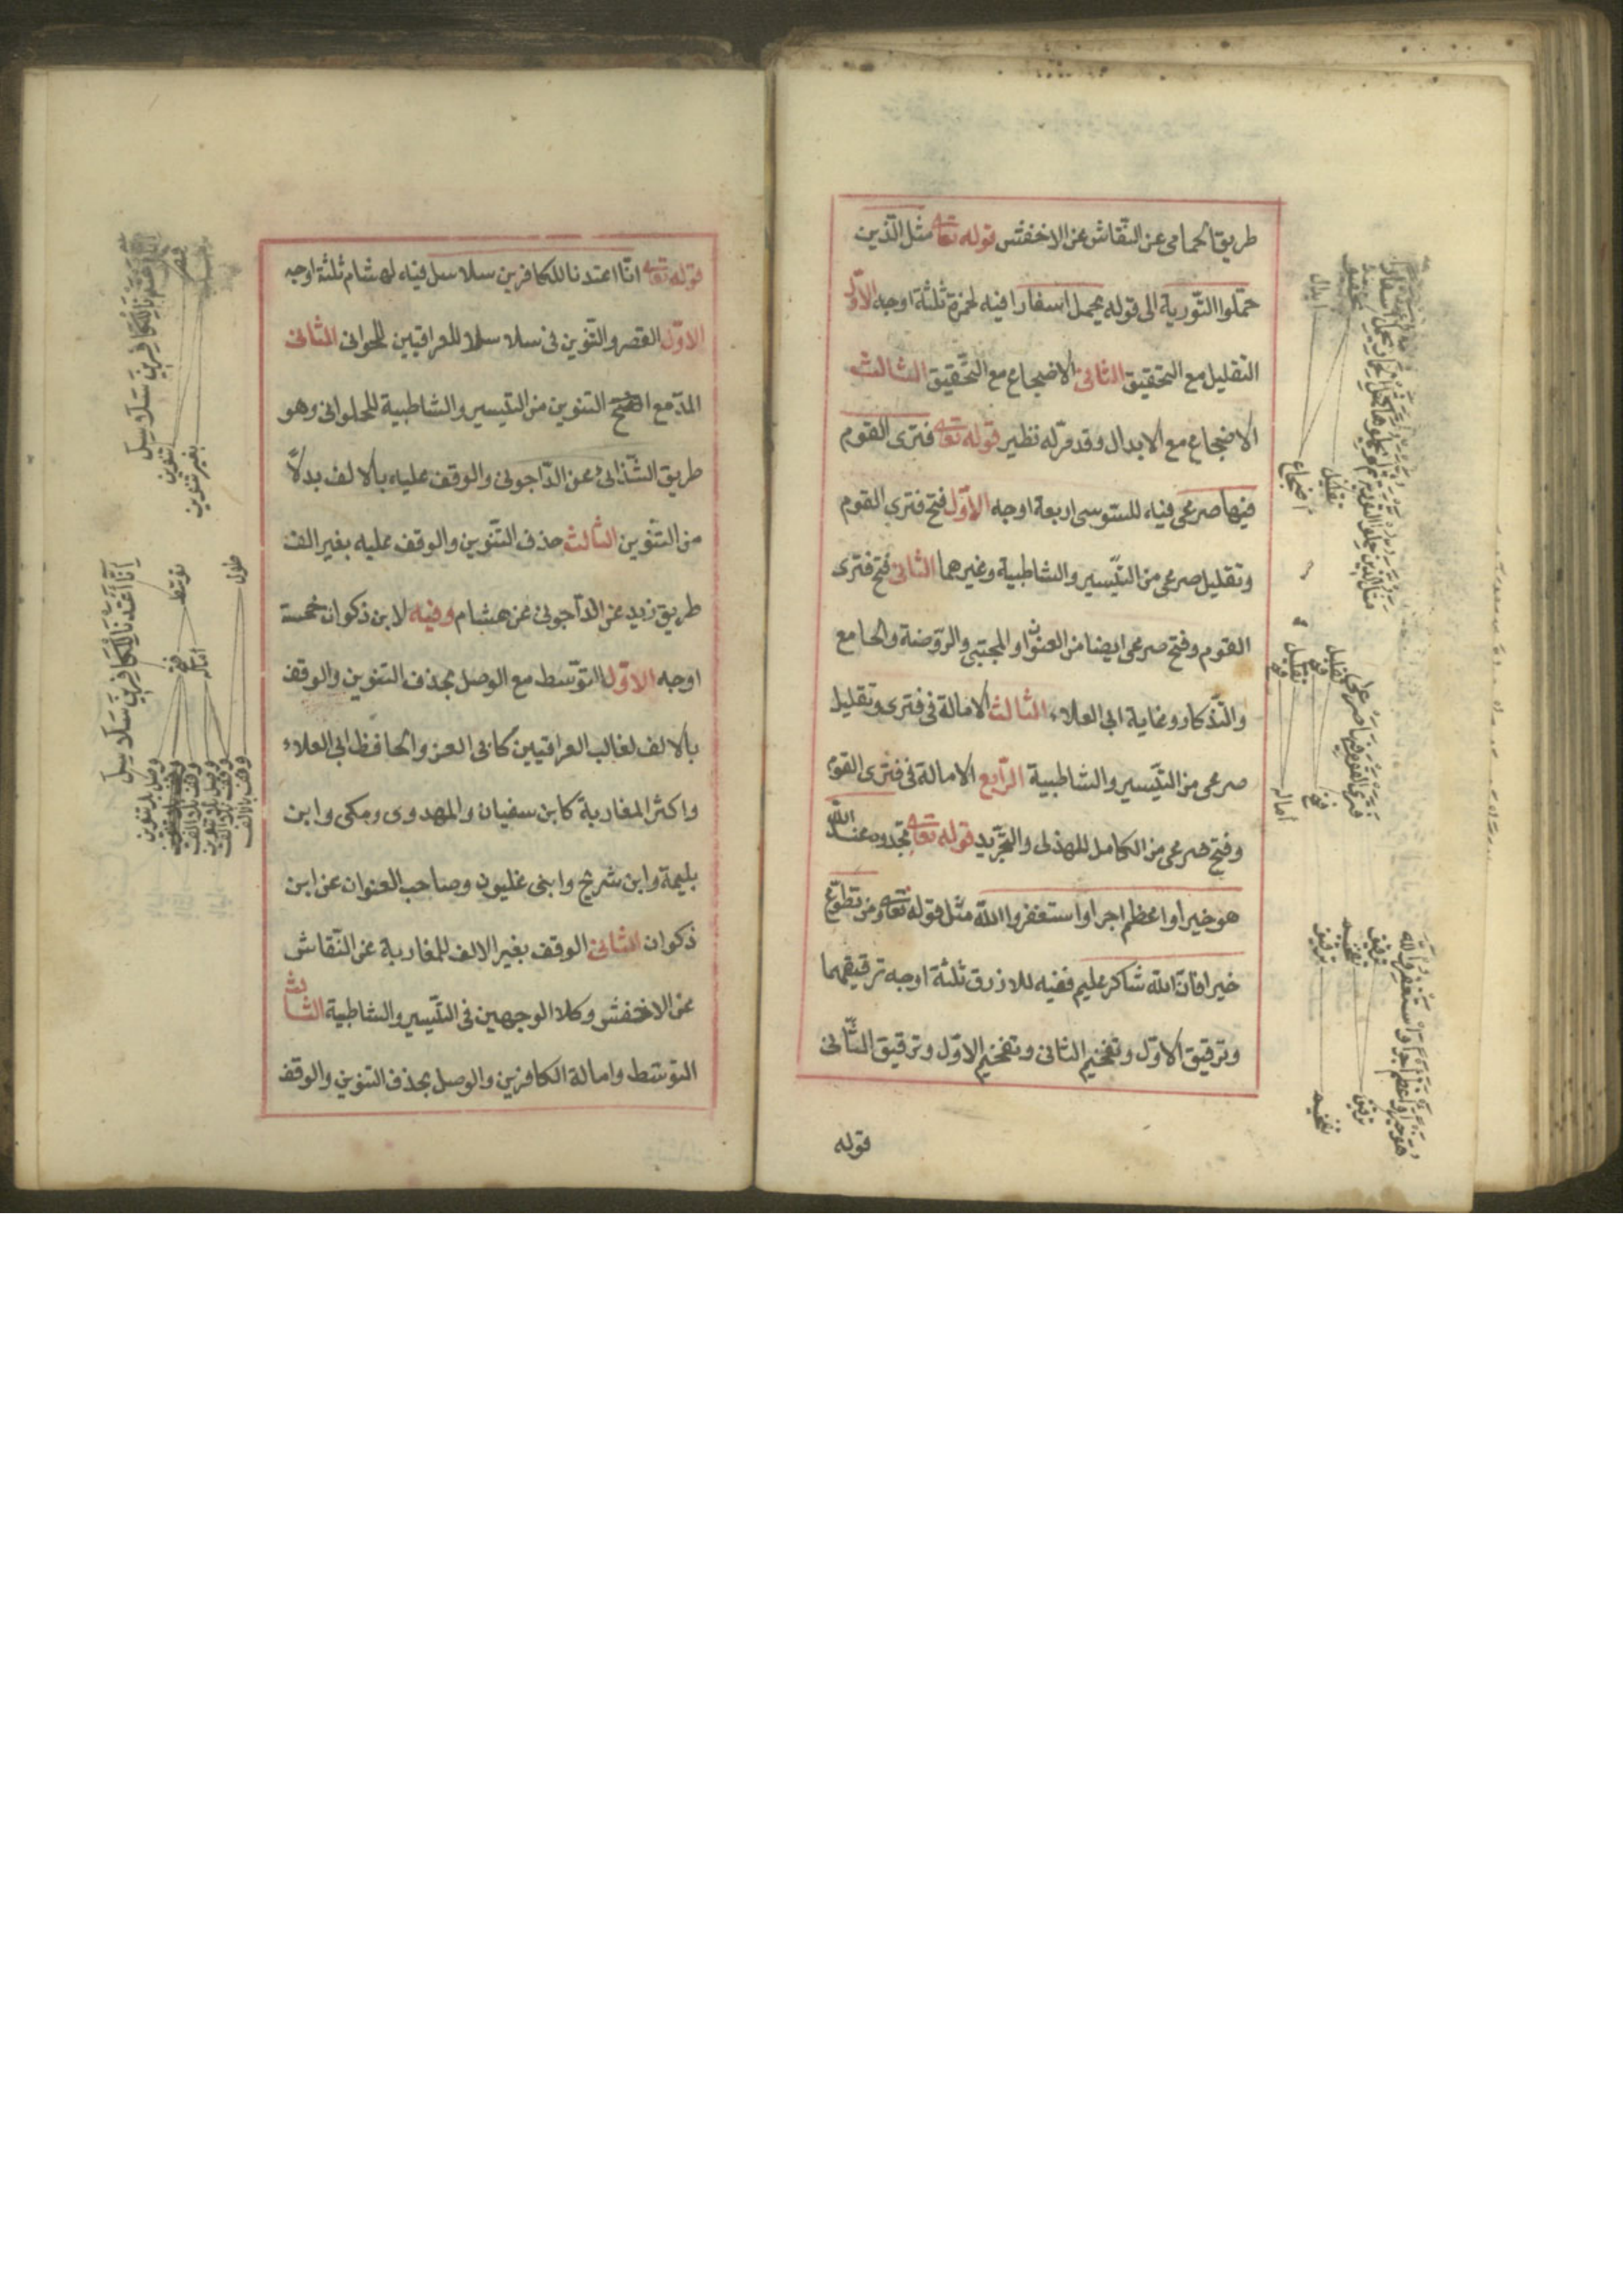 طريق الحمامى عن النقاش عن الاخفش قوله تعالى مثل الذين
حمّلوا التّورية الى قوله يحمل اسفارا فيه لحمزة ثلثة اوجه الاوّل
التقليل مع التحقيق الثانى الاضجاع مع التحقيق الثالث
الاضجاع مع الابدال وقد مرّ له نظير قوله تعالى فترى القوم
فيها صرعى فيه للسّوسى اربعة اوجه الاوّل فتح فترى القوم
وتقليل صرعى من التّيسير والشاطبية وغيرهما الثانى فتح فترى
القوم وفتح صرعى ايضا من العنوان والمجتبى والرّوضة والجامع
والتّذكار وغاية ابى العلاء الثالث الامالة فى فترى وتقليل
صرعى من التّيسير والشاطبية الرّابع الامالة فى فترى القوم
وفتح صرعى من الكامل للهذلى والتّجريد قوله تعالى تجدوه عند اللّه
هو خيرا واعظم اجرا واستغفروا اللّه مثل قوله تعالى ومن تطوّع
خيرا فانّ اللّه شاكر عليم ففيه للازرق ثلثة اوجه ترقيقهما
وترقيق الاوّل وتفخيم الثانى وتفخيم الاوّل وترقيق الثّانى
قوله
تحقيق
ابدال
تقليل
اضجاع
فترى القوم فيها صرعى
تقليل
فتح
تقليل
فتح
فتح
امالة
هو خيرا واعظم اجرا واستغفروا اللّه
ترقيق
تفخيم
ترقيق
ترقيق
تفخيم
قوله تعالى انّا اعتدنا للكافرين سلاسل فيه لهشام ثلثة اوجه
الاوّل القصر والتّنوين فى سلاسلا للعراقيين للحلوانى الثانى
المدّ مع التنوين من التّيسير والشاطبية للحلوانى وهو
طريق الشّذائى عن الدّاجونى والوقف عليه بالالف بدلاً
من التّنوين الثالث حذف التّنوين والوقف عليه بغير الف
طريق زيد عن الدّاجونى عن هشام وفيه لابن ذكوان خمسة
اوجه الاوّل التّوسّط مع الوصل بحذف التنوين والوقف
بالالف لغالب العراقيين كابى العز والحافظ ابى العلاء
واكثر المغاربة كابن سفيان والمهدوى ومكى وابن
بليمة وابن شريح وابنى غلبون وصاحب العنوان عن ابن
ذكوان الثانى الوقف بغير الالف للمغاربة عن النّقاش
عن الاخفش وكلا الوجهين فى التّيسير والشاطبية الثالث
التوسّط وامالة الكافرين والوصل بحذف التنوين والوقف
قصر
تنوين
بغير تنوين
انّا اعتدنا للكافرين سلاسل
توسّط
طول
فتح
امالة
وصل بلا تنوين
وقف بالالف